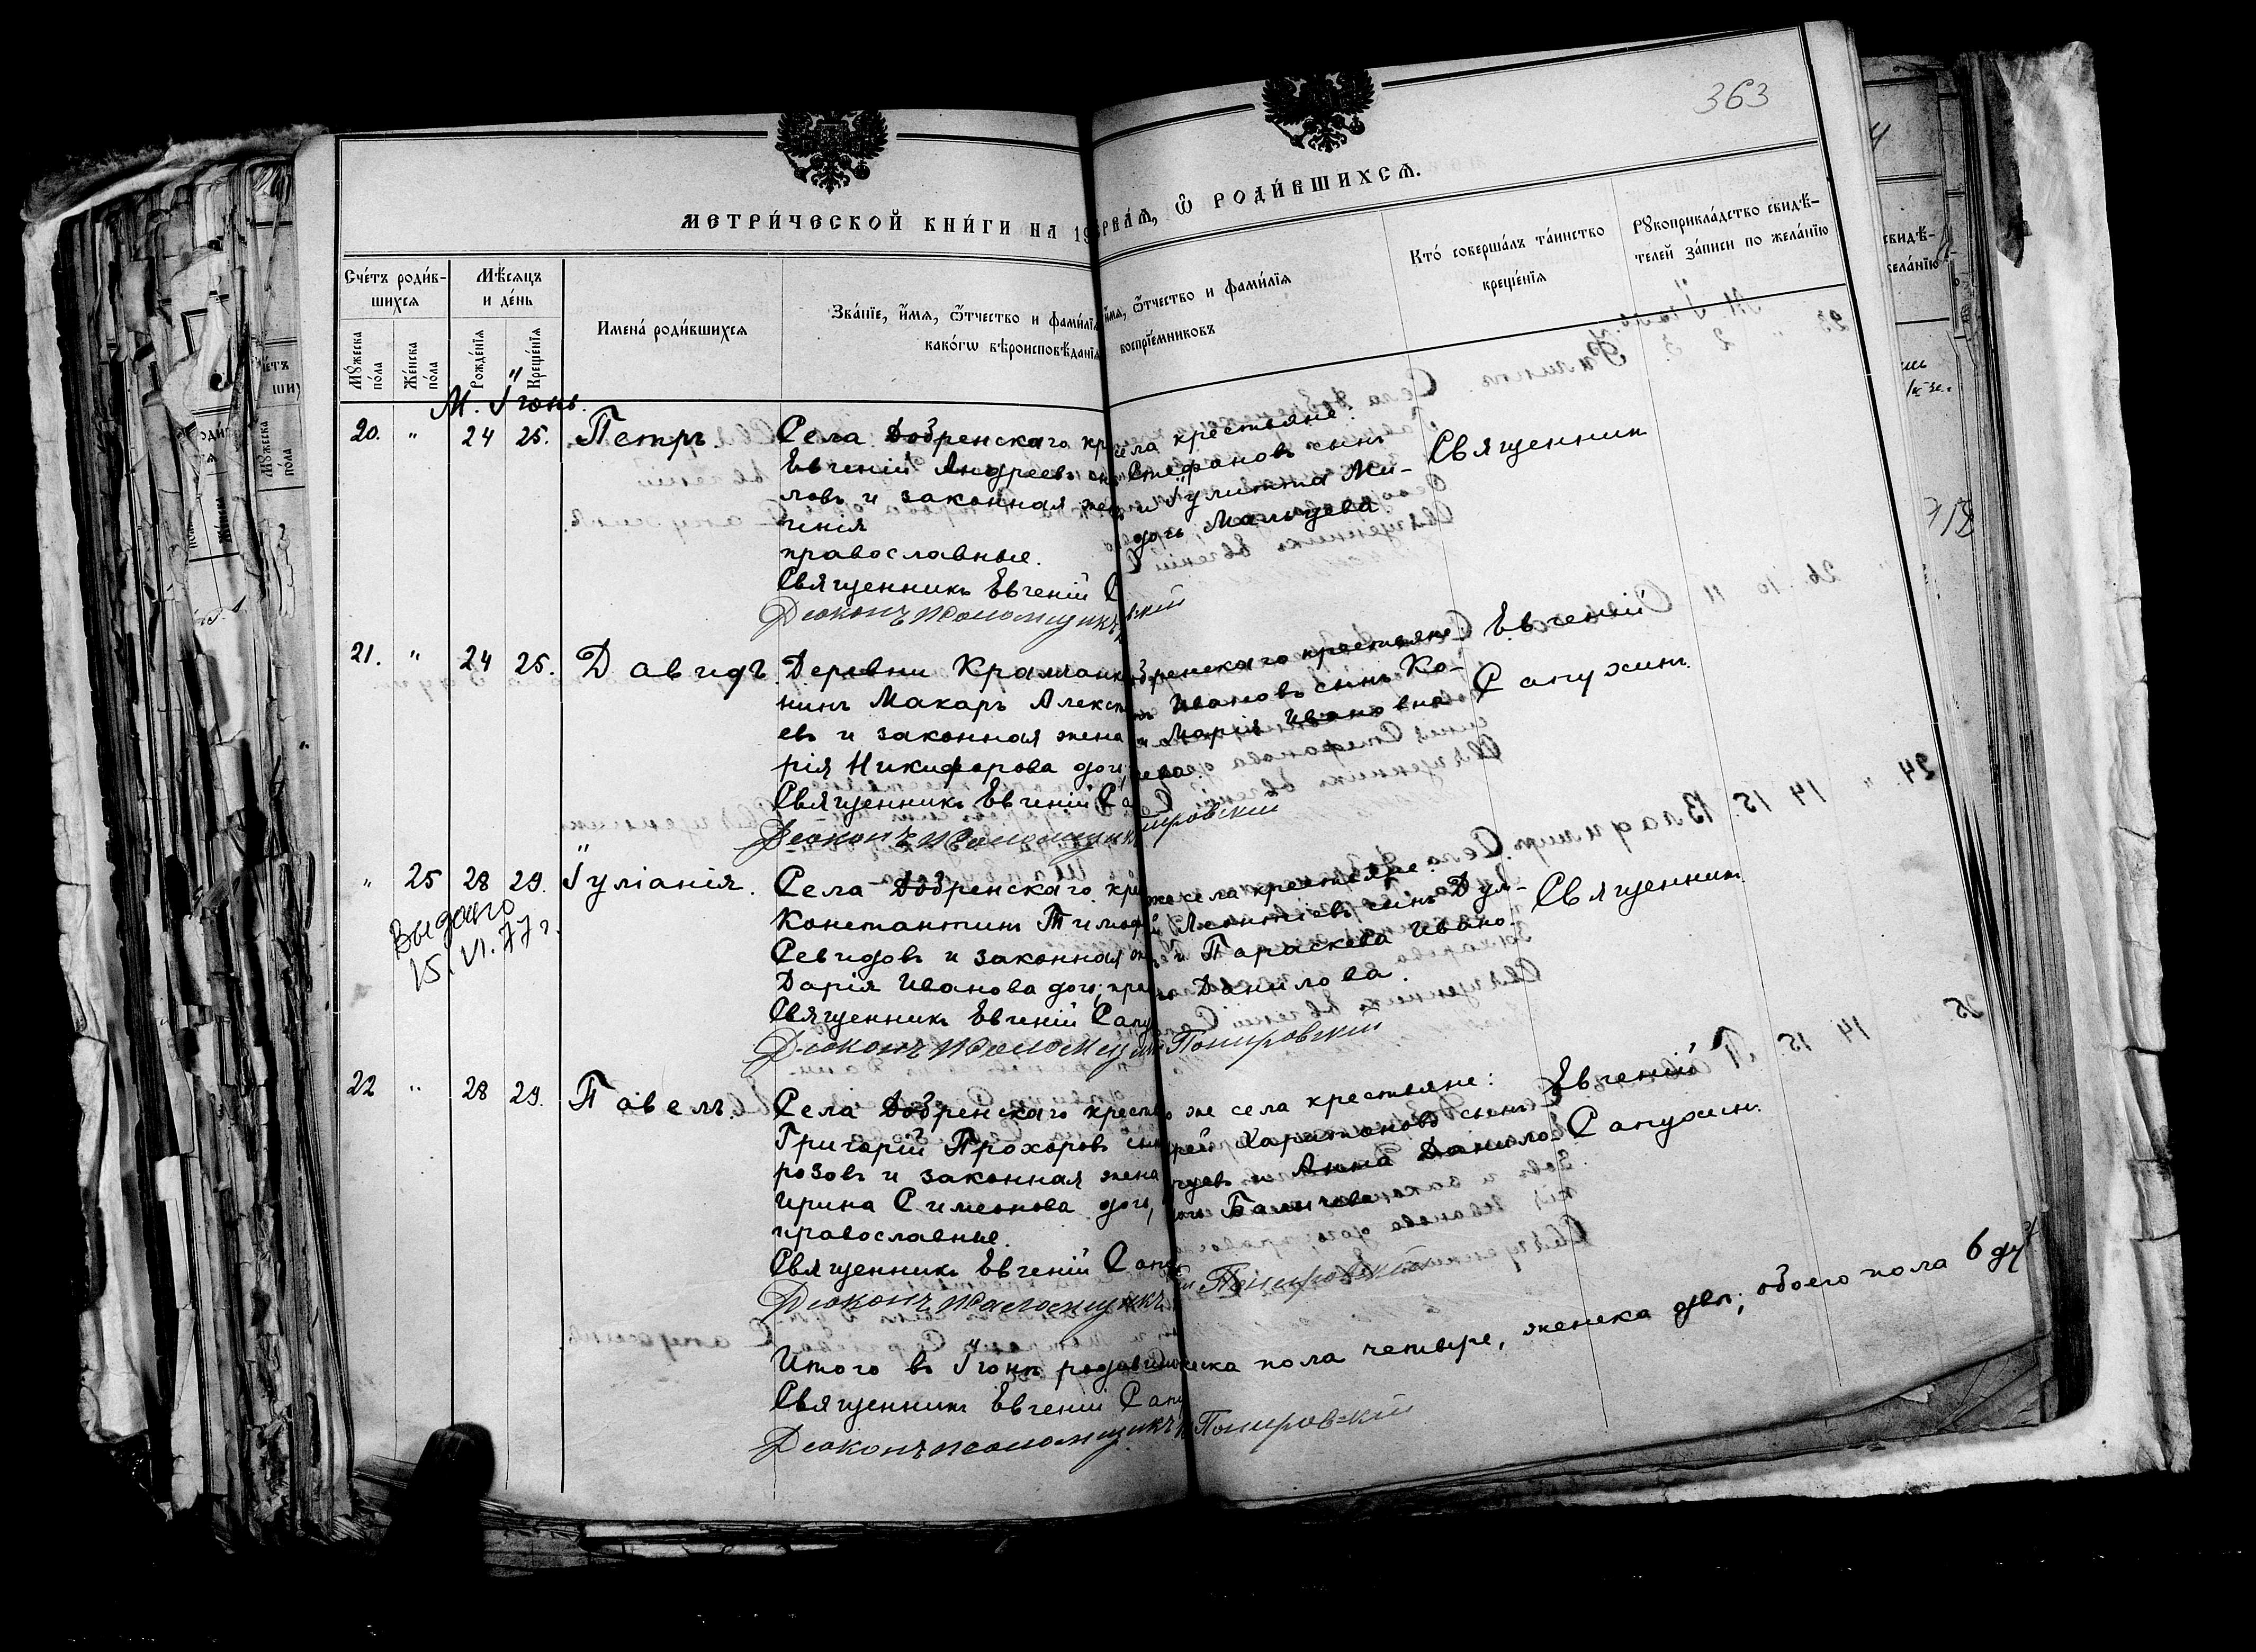 363
МЕТРИ́ЧЕСКОЙ КНИ́ГИ НА 19
РВА́Я, Ѿ РОДИ́ВШИХСЯ.
Сче́тъ роди́в-
шихся
Мꙋ́жеска по́ла
Же́нска по́ла
Мѣ́сяцъ
и де́нь
Рожде́нїя
Креще́нїя
Имена́ роди́вшихся
Зва́нїе, и́мя, ѻ҆́тчество и фами́лїя
како́гѡ вѣроисповѣ́данїя
и́мя, ѻ҆́тчество и фами́лїя
воспрїе́мниковъ
Кто́ соверша́лъ та́инство
креще́нїя
Рꙋкоприкла́дство свидѣ́-
телей за́писи по жела́нїю
М. Іюнь.
20. " 24 25. Петръ
Села Добренскаго кр
Евгеній Андреевъ
ловъ и законная жен
гинія
православные.
Священникъ Евгеній С
Діаконъ псаломщикъ
села крестьяне:
Стефановъ сынъ
и Іулитта Ми-
дочь Мальцева
вскій
Священник
21. " 24 25. Давидъ
Деревни Крапанк
нинъ Макаръ Алекс
евъ и законная жена
рія Никифорова доч
Священникъ Евгеній Са
Діаконъ псаломщик
обренскаго крестьяне
Ивановъ сынъ Ко-
и Марія Ивановна
нировскій
Евгеній
Сапухинъ.
" 25 28 29. Іуліанія.
Выдано
15. VI. 77 г.
Села Добренскаго кре
Константинъ Тимоф
Севидовъ и законная ж
Дарія Иванова доч; пра
Священникъ Евгеній Сапу
Діаконъ псаломщик
же села крестьяне:
Леонтіевъ сынъ Дум-
и Параскева Ивано-
Данилова.
Понировскій
Священник
22 " 28 29. Павелъ.
Села Добренскаго крест
Григорій Прохоровъ сын
розовъ и законная жена
Ирина Симеонова доч,
православные.
Священникъ Евгеній Сапу
Діаконъ псаломщикъ
же села крестьяне:
рей Харитоновъ сынъ
цевъ и Анна Данило
доч Балычева
Понировскій
Евгеній
Сапухин.
Итого въ Іюнѣ родивш
жеска пола четыре, женска двѣ; обоего пола 6 ду
Священникъ Евгеній Сапу
Діаконъ псаломщикъ
Понировскій